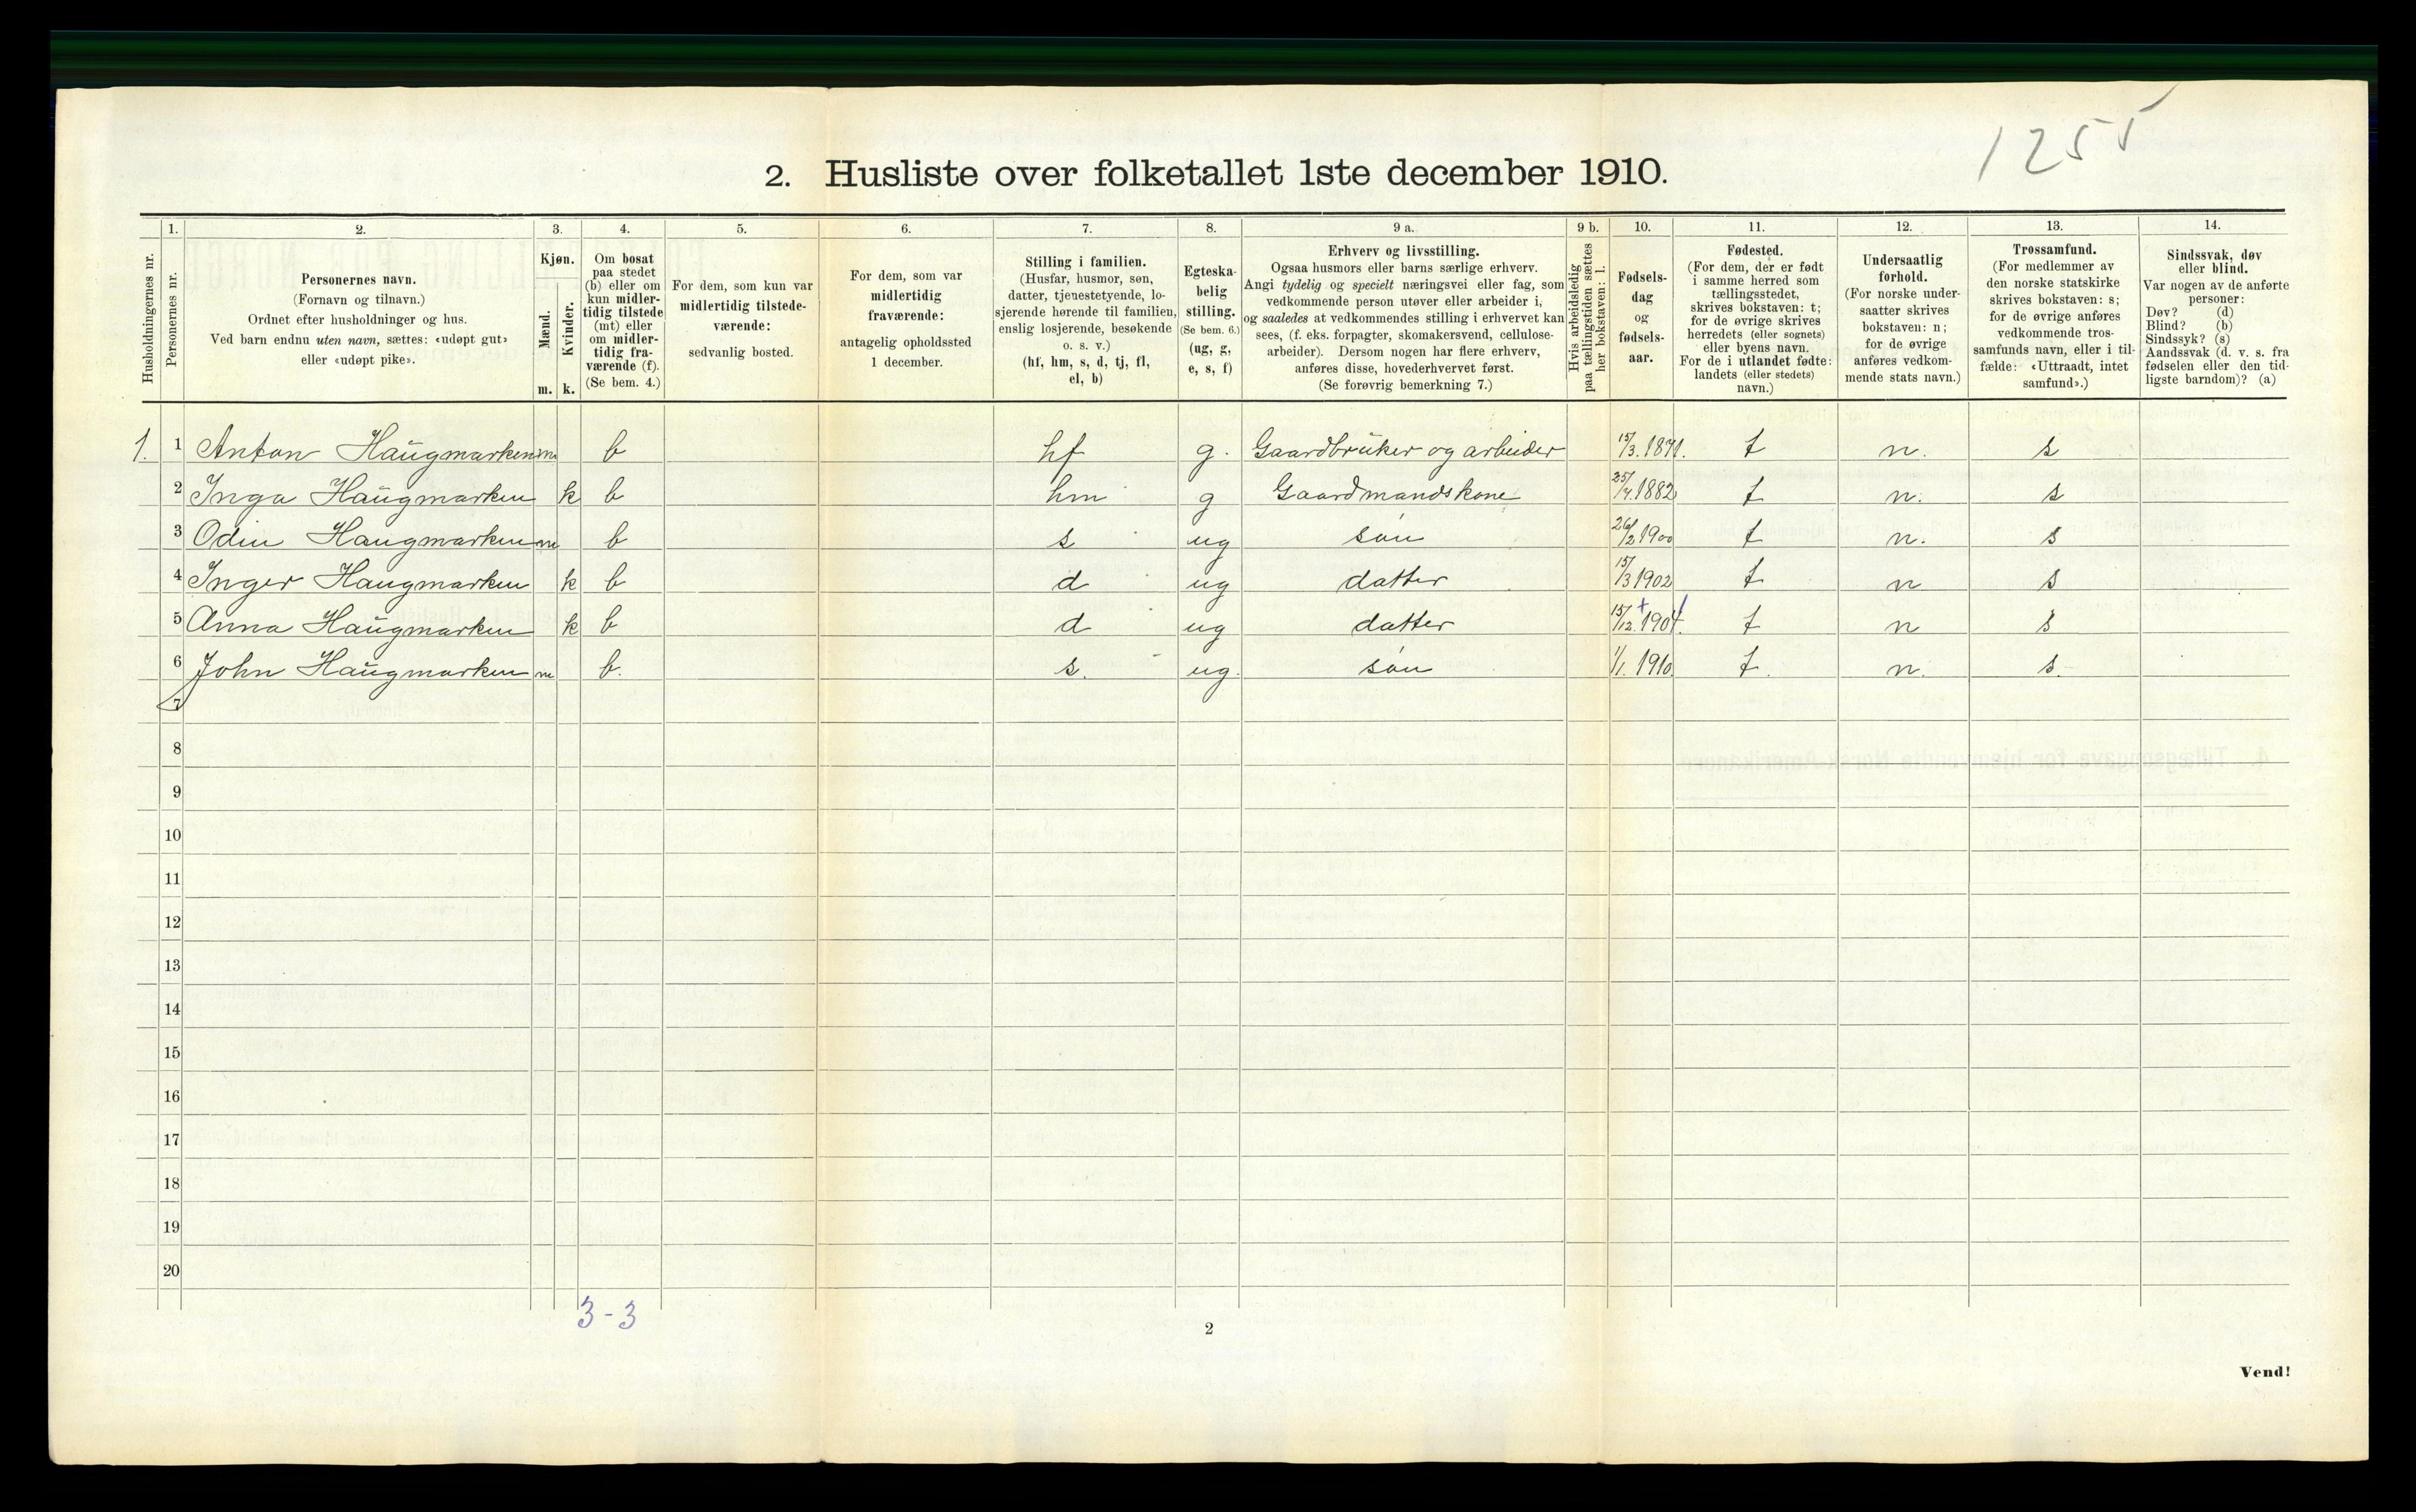 1255
2. Husliste over folketallet 1ste december 1910.
Husholdningernes nr.
1.
Personernes nr.
2.
Personernes navn.
(Fornavn og tilnavn.)
Ordnet efter husholdninger og hus.
Ved barn endnu uten navn, sættes: «udøpt gut»
eller «udøpt pike».
3.
Kjøn.
Mænd.
Kvinder.
m. k.
4.
Om bosat
paa stedet
(b) eller om
kun midler-
tidig tilstede
(mt) eller
om midler-
tidig fra-
værende (f).
(Se bem. 4.)
5.
For dem, som kun var
midlertidig tilstede-
værende:
sedvanlig bosted.
6.
For dem, som var
midlertidig
fraværende:
antagelig opholdssted
1 december.
7.
Stilling i familien.
(Husfar, husmor, søn,
datter, tjenestetyende, lo-
sjerende hørende til familien,
enslig losjerende, besøkende
o. s. v.)
(hf, hm, s, d, tj, fl,
el, b)
8.
Egteska-
belig
stilling.
(Se bem. 6.)
(ug, g,
e, s, f)
9 a.
Erhverv og livsstilling.
Ogsaa husmors eller barns særlige erhverv.
Angi tydelig og specielt næringsvei eller fag, som
vedkommende person utøver eller arbeider i,
og saaledes at vedkommendes stilling i erhvervet kan
sees, (f. eks. forpagter, skomakersvend, cellulose-
arbeider). Dersom nogen har flere erhverv,
anføres disse, hovederhvervet først.
(Se forøvrig bemerkning 7.)
9 b.
Hvis arbeidsledig
paa tællingstiden sættes
her bokstaven: l.
10.
Fødsels-
dag
og
fødsels-
aar.
11.
Fødested.
(For dem, der er født
i samme herred som
tællingsstedet,
skrives bokstaven: t;
for de øvrige skrives
herredets (eller sognets)
eller byens navn.
For de i utlandet fødte:
landets (eller stedets)
navn.)
12.
Undersaatlig
forhold.
(For norske under-
saatter skrives
bokstaven: n;
for de øvrige
anføres vedkom-
mende stats navn.)
13.
Trossamfund.
(For medlemmer av
den norske statskirke
skrives bokstaven: s;
for de øvrige anføres
vedkommende tros-
samfunds navn, eller i til-
fælde: «Uttraadt, intet
samfund».)
14.
Sindssvak, døv
eller blind.
Var nogen av de anførte
personer:
Døv? (d)
Blind? (b)
Sindssyk? (s)
Aandssvak (d. v. s. fra
fødselen eller den tid-
ligste barndom)? (a)
1. 1 Anton Haugmarken m b hf g. Gaardbruker og arbeider 15/3. 1871. t n. s
2 Inga Haugmarken k b hm g Gaardmandskone 25/4. 1882 t n. s
3 Odin Haugmarken m b s ug søn 26/2 1900 t n. s
4 Inger Haugmarken k b d ug datter 15/3 1902 t n s
5 Anna Haugmarken k b d ug datter 15/12. 1904. t n s
6 John Haugmarken m b. s. ug. søn 1/1. 1910. t. n. s.
7
8
9
10
11
12
13
14
15
16
17
18
19
20
3-3
2
Vend!